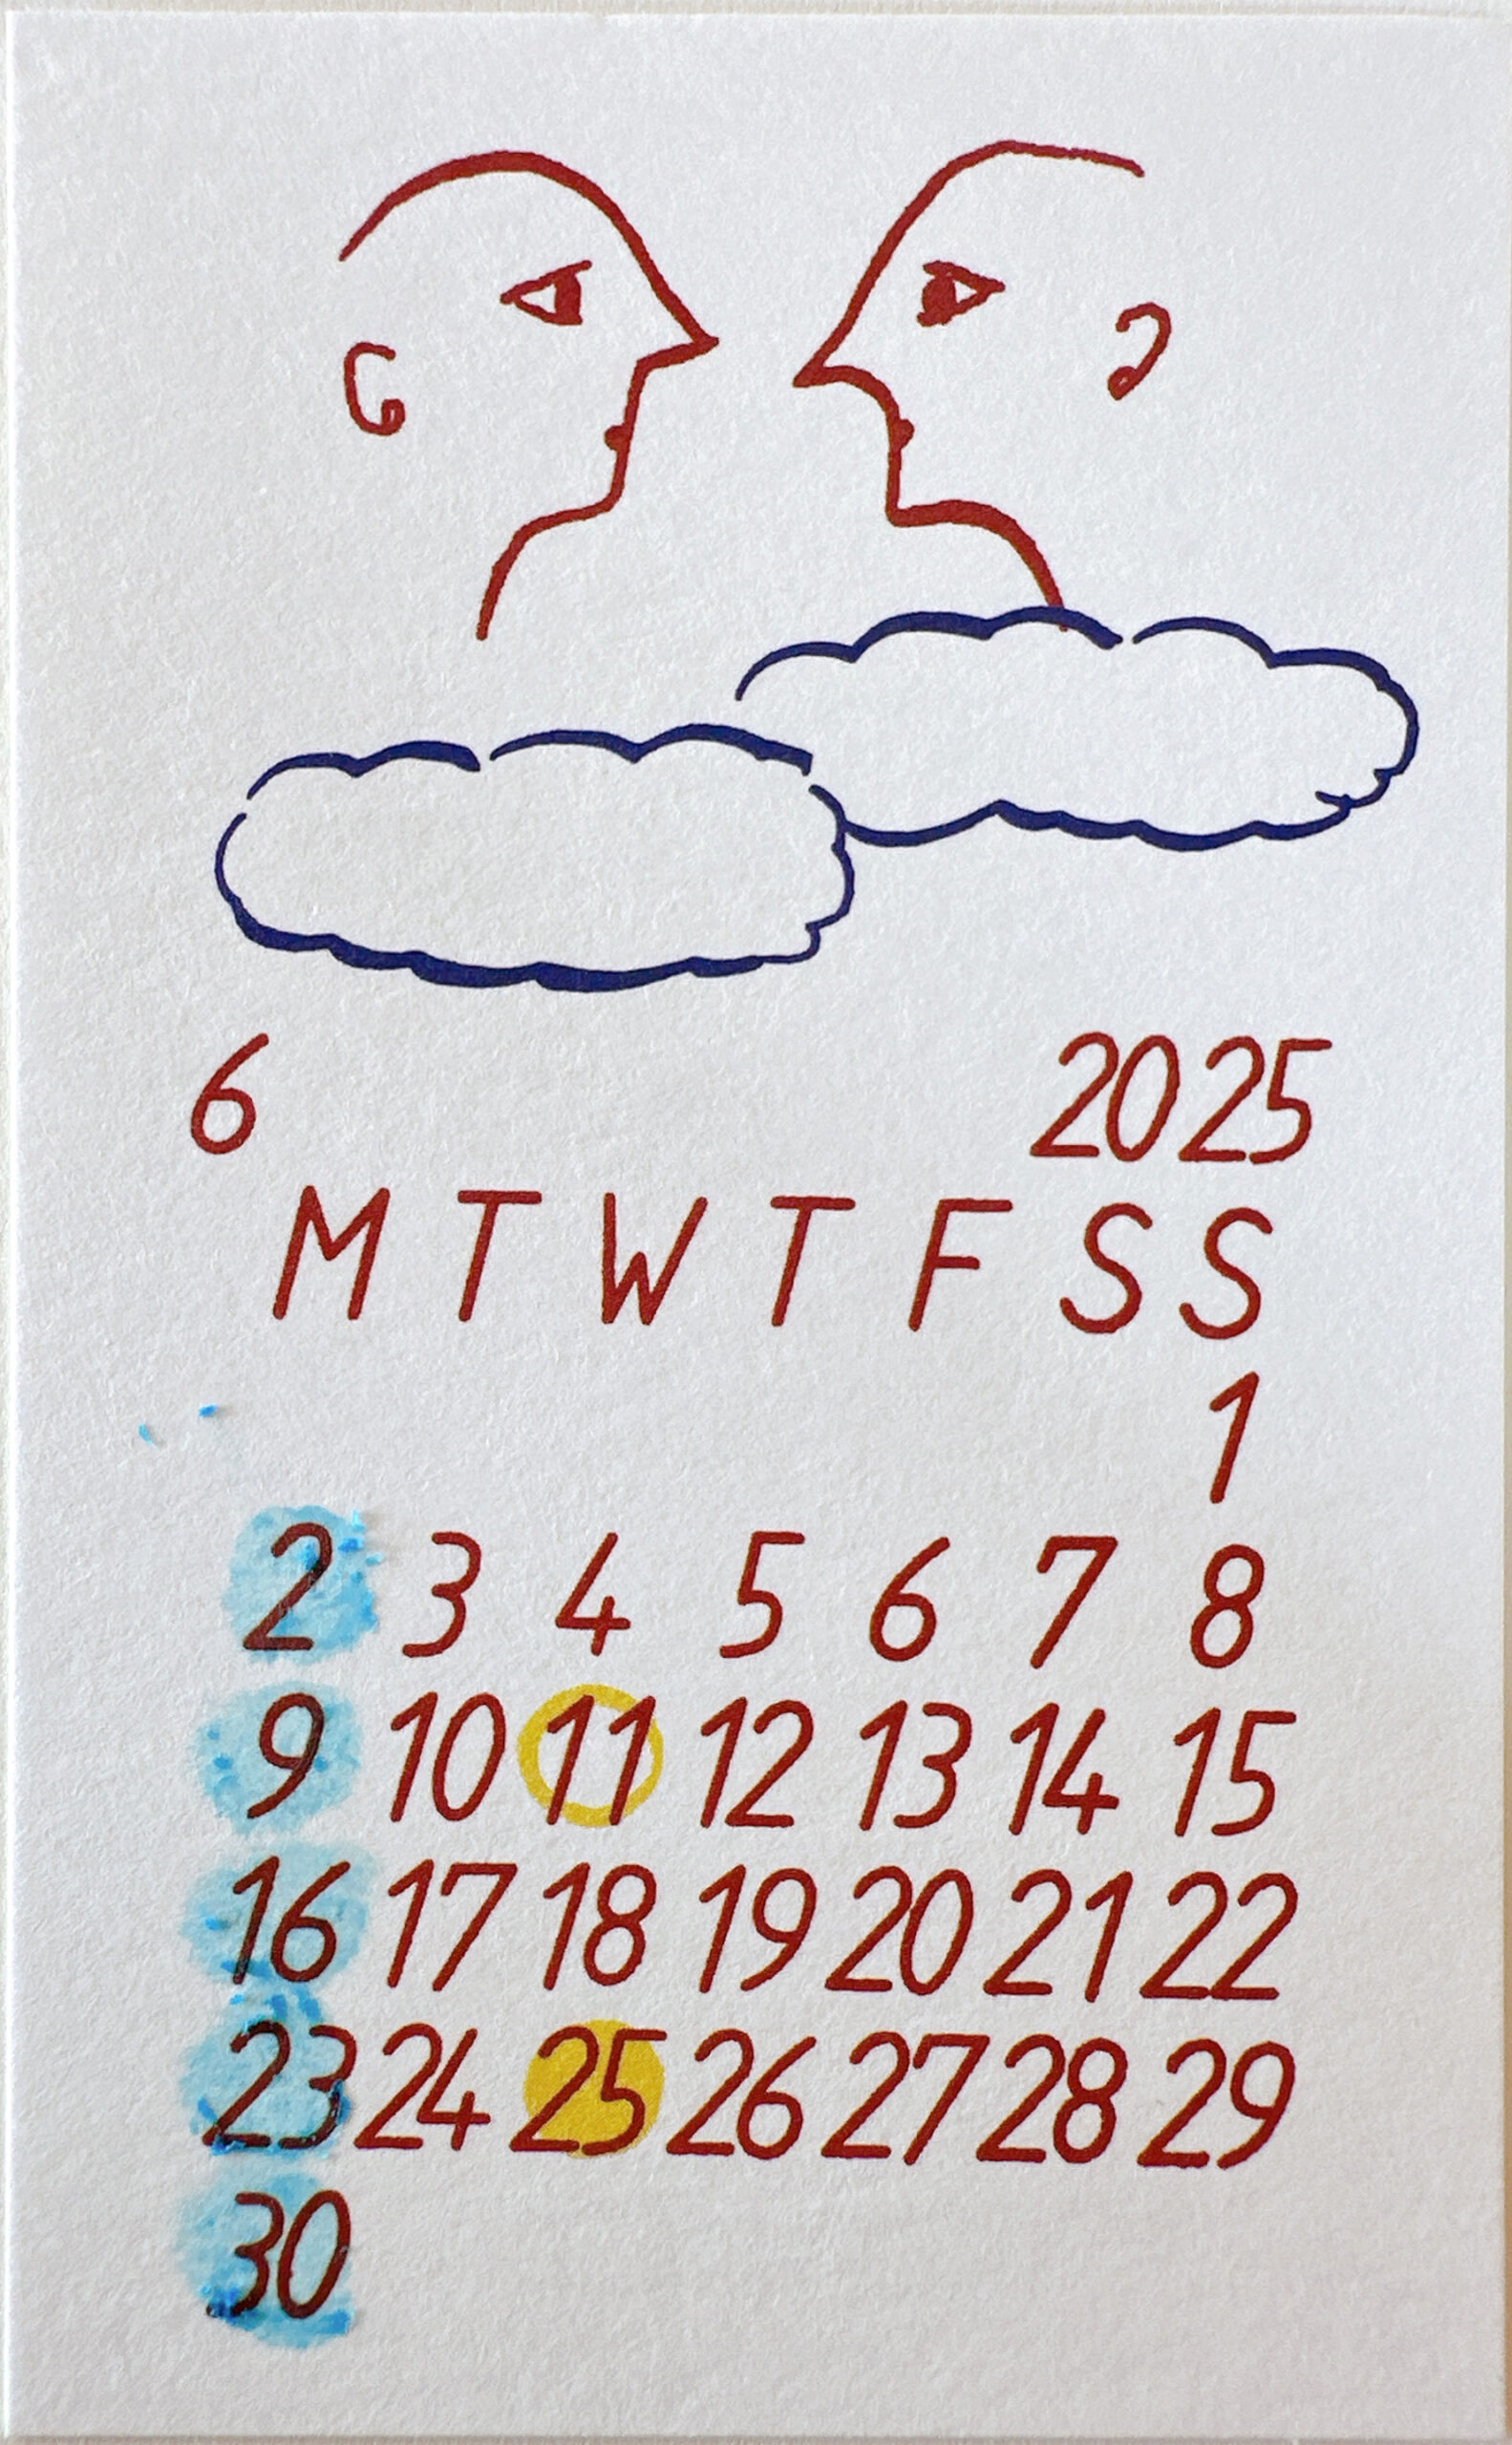 6 2025
M T W T F S S
1
2 3 4 5 6 7 8
9 10 11 12 13 14 15
16 17 18 19 20 21 22
23 24 25 26 27 28 29
30